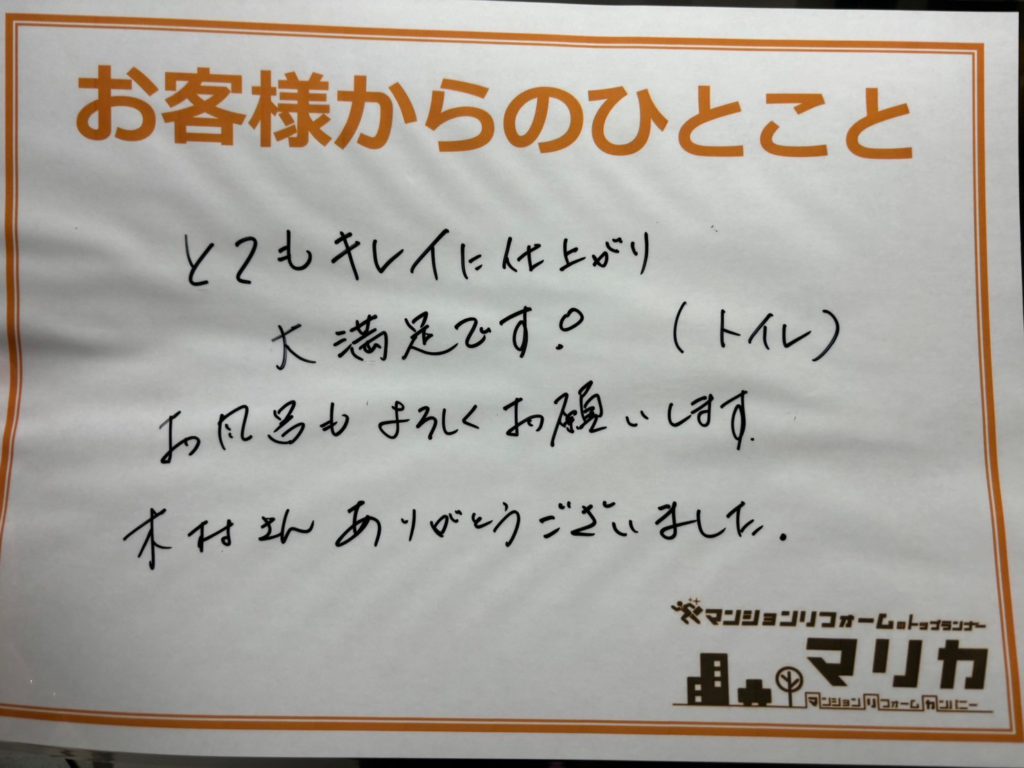 お客様からのひとこと
とてもキレイに仕上がり
大満足です。 (トイレ)
お風呂もよろしくお願いします。
木村さん ありがとうございました。
マンションリフォームのトップランナー
マリカ
マンションリフォームカンパニー